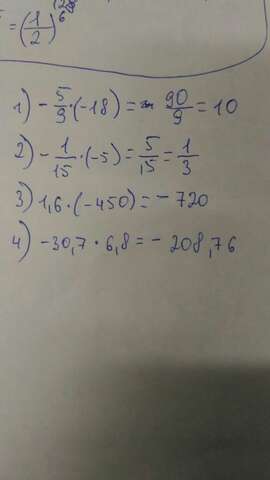 = (1/2)^6
1) - 5/9 · (-18) = 90/9 = 10
2) - 1/15 · (-5) = 5/15 = 1/3
3) 1,6 · (-450) = - 720
4) -30,7 · 6,8 = - 208,76